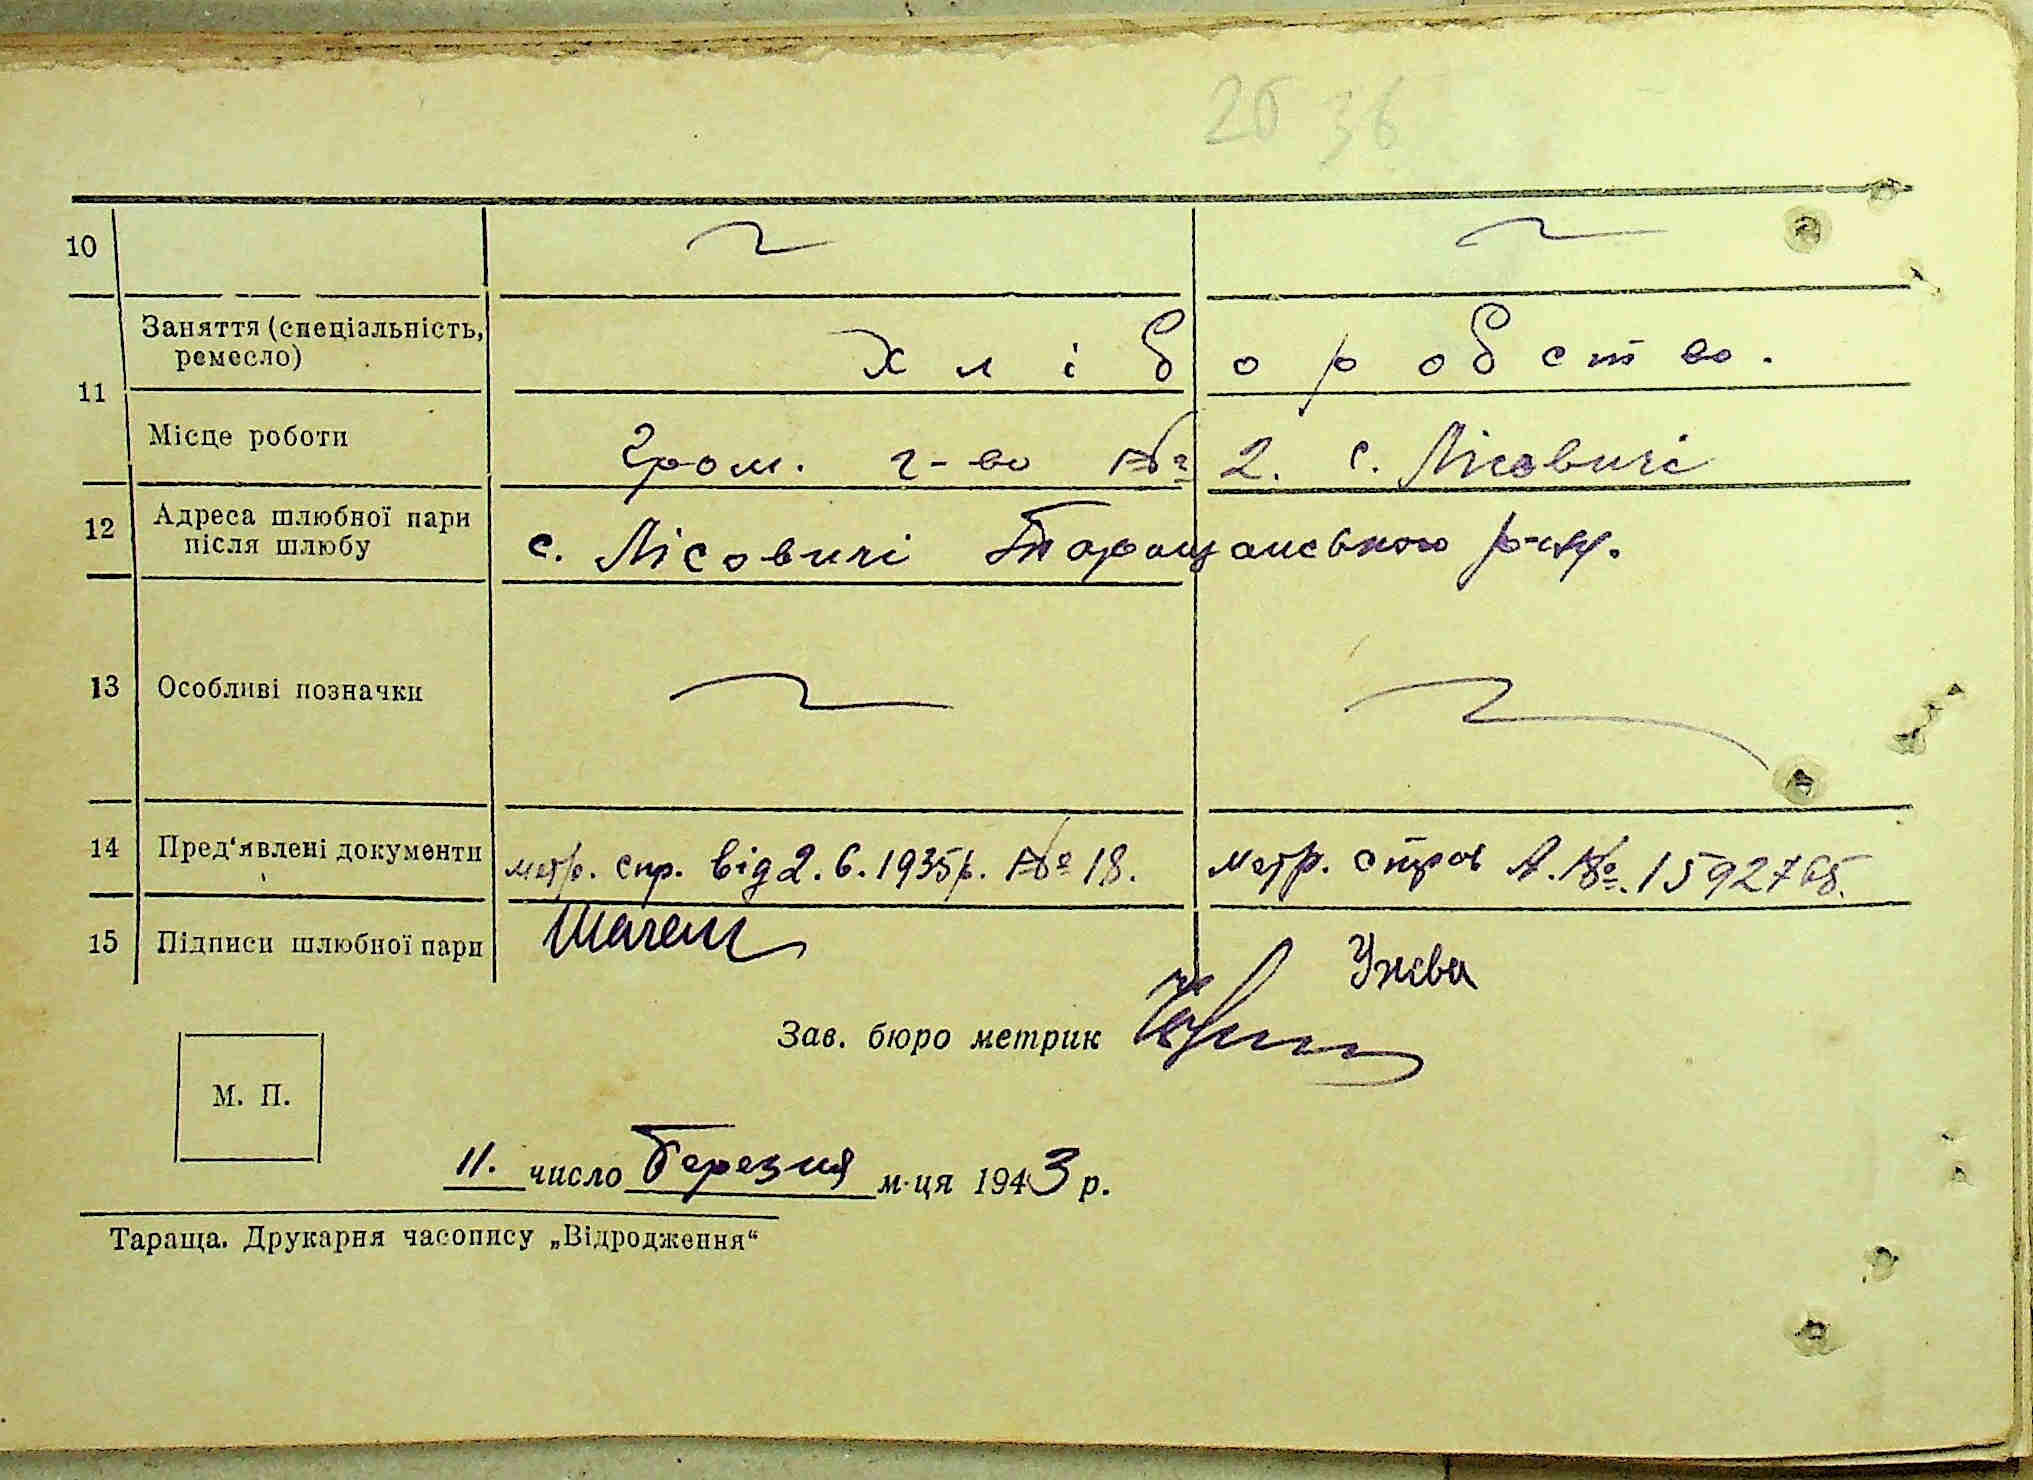 26 36
10
11 Заняття (спеціальність, ремесло) Хліборобство.
Місце роботи Гром. г-во № 2. с. Лісовичі
12 Адреса шлюбної пари після шлюбу с. Лісовичі Таращанського р-ну.
13 Особливі позначки
14 Пред'явлені документи метр. спр. від 2.6.1935р. № 18. метр. справ А. №. 1592765.
15 Підписи шлюбної пари
Зав. бюро метрик
М. П.
11. число березня м-ця 1943 р.
Тараща. Друкарня часопису „Відродження“